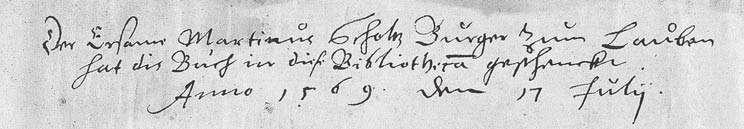 Der Ersame Martinus Scholtz Burger zum Lauben
hat dis Buch in diese Bibliothecā geschenckt
Anno 1569. den 17 Julij.